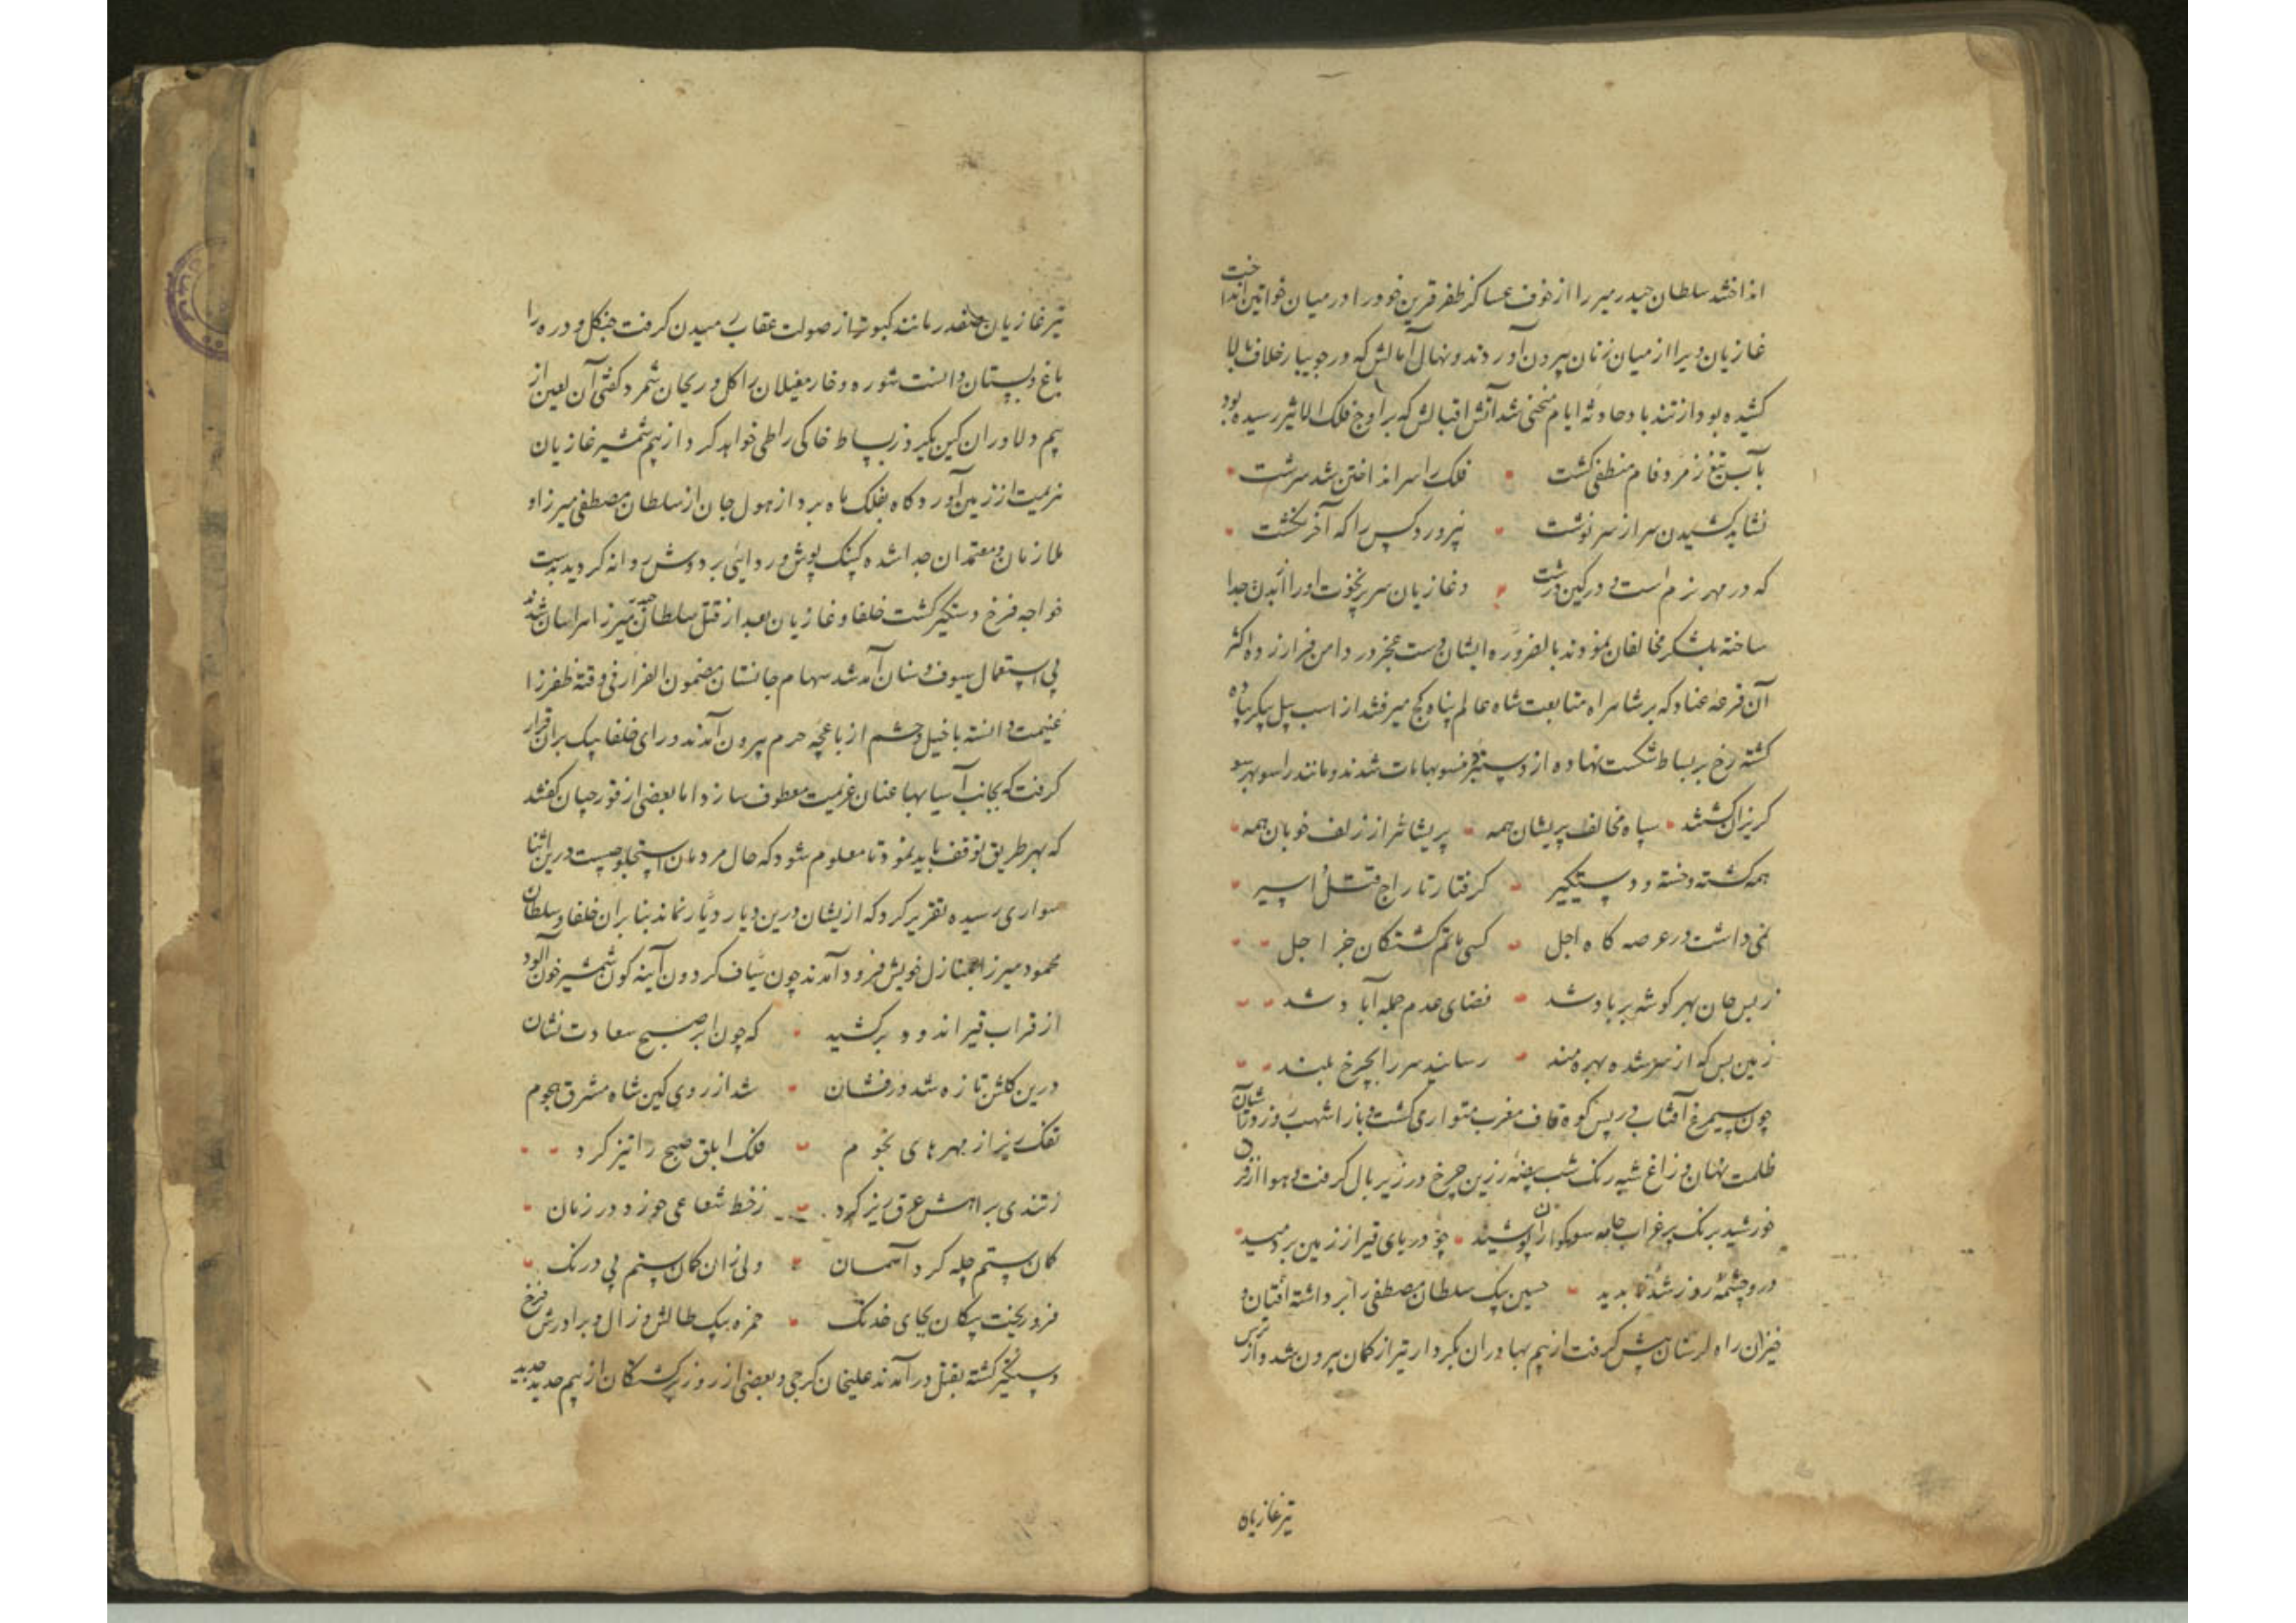 انداختند سلطان حیدر میرزا از خوف عساکر ظفر قرین خود را در میان خواتین انداخت
غازیان ویرا از میان زنان بیرون آوردند و نهال آمالش که در جویبار خلاف بالا
کشیده بود از تند باد حادثه ایام منحنی شد آتش اقبالش که بر اوج فلک الاثیر رسیده بود
بآب تیغ زمرد فام منطفی کشت فلک را سر انداختن شد سرشت
نشاید کشیدن سر از سرنوشت نپرورد کس را که آخر نکشت
که در مهر نرم است و در کین درشت و غازیان سر پرنخوت او را از بدن جدا
ساخته بلشکر مخالفان نمودند بالضروره ایشان دست عجز در دامن فرار زده اکثر
آن فرقه عناد که بر شاهراه متابعت شاه عالم پناه کج میرفتند از اسب پیل پیکر پیاده
کشته رخ بر بساط شکست نهاده از منصوبها مات شدند و مانند راسو بهر سو
کریزان کشتند سپاه مخالف پریشان همه پریشانتر از زلف خوبان همه
همه کشته و خسته و دستکیر کرفتار تاراج و قتل و اسیر
نمی داشت در عرصه کاه اجل کسی ماتم کشتکان جز اجل
ز بس جان بهر کوشه بر باد شد فضای عدم جمله آباد شد
زمین بس که از سر شده بهره مند رسانید سر را بچرخ بلند
چون سیمرغ آفتاب در پس کوه قاف مغرب متواری کشت و باز اشهب روز در آشیان
ظلمت نهان و زاغ شبه رنک شب بیضه زرین چرخ در زیر بال کرفت و هوا از فراق
خورشید برنک پر غراب جامه سوکواران پوشید چو دریای قیر از زمین بردمید
درو چشمه روز شد ناپدید حسین بیک سلطان مصطفی را برداشته افتان و
خیزان راه لرستان پیش کرفت از بیم بهادران بکردار تیر از کمان بیرون شد و از ترس
تیر غازیان
تیر غازیان صفدر مانند کبوتر از صولت عقاب رمیدن کرفت جنکل و دره را
باغ و بستان دانست شوره و خار مغیلان را کل و ریحان شمرد کفتی آن لعین از
بیم دلاوران کین بیکروز بساط خاکی را طی خواهد کرد از بیم شمشیر غازیان
هزیمت از زمین آورد کاه بفلک ماه برد از هول جان از سلطان مصطفی میرزا و
ملازمان و معتمدان جدا شده کپنک پوش و ردایی بر دوش روانه کردید بدست
خواجه فرخ دستکیر کشت خلفا و غازیان بعد از قتل سلطان حیدر میرزا هراسان شدند
بی استعمال سیوف و سنان آمد شد سهام جانستان مضمون الفرار فی وقته ظفر را
غنیمت دانسته با خیل و حشم از باغچه حرم بیرون آمدند و رای خلفا بیک بر آن قرار
کرفت که بجانب آسیابها عنان عزیمت معطوف سازد اما بعضی از قورچیان کفتند
که بهر طریق توقف باید نمود تا معلوم شود که حال مردمان استجلو چیست درین اثنا
سواری رسیده تقریر کرد که از ایشان درین دیار دیار نماند بنابر آن خلفا و سلطان
محمود میرزا بمنازل خویش فرود آمدند چون سیاف کردون آینه کون شمشیر خون آلود
از قراب قیر اندود برکشید که چون ابر صبح سعادت نشان
درین کلشن تازه شد درفشان شد از روی کین شاه مشرق هجوم
تفک ریز از مهرهای نجوم فلک ابلق صبح را تیز کرد
ز تندی براهش عرق ریز کرد ز خط شعاعی خور در زمان
کمان ستم چله کرد آسمان ولی زان کمان ستم بی درنک
فرو ریخت پیکان بجای خدنک حمزه بیک طالش و زال و برادرش فرخ
دستکیر کشته بقتل در آمدند علیخان کرجی و بعضی از روز برکشتکان از بیم حدید